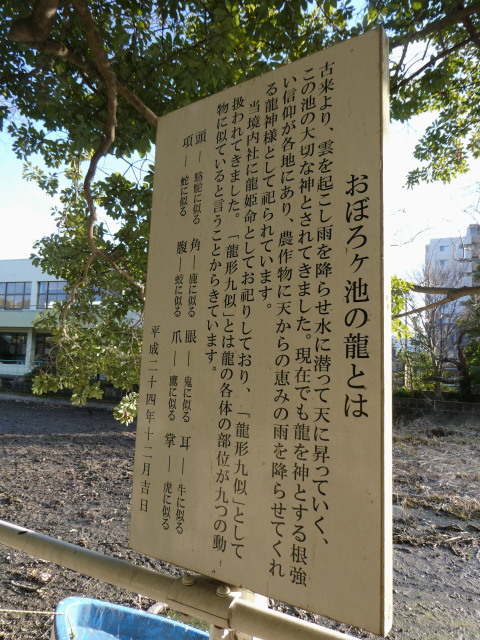 おぼろヶ池の龍とは
古来より、雲を起こし雨を降らせ水に潜って天に昇っていく、
この池の大切な神とされてきました。現在でも龍を神とする根強
い信仰が各地にあり、農作物に天からの恵みの雨を降らせてくれ
る龍神様として祀られています。
当境内社に龍姫命としてお祀りしており、「龍形九似」として
扱われてきました。「龍形九似」とは龍の各体の部位が九つの動
物に似ていると言うことからきています。
頭―駱駝に似る 角―鹿に似る 眼―鬼に似る 耳―牛に似る
項―蛇に似る 腹―蛟に似る 爪―鷹に似る 掌―虎に似る
平成二十四年十二月吉日